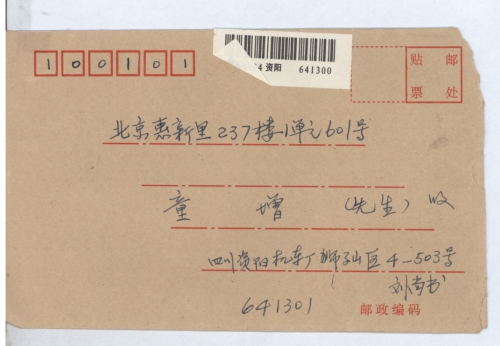 100101
资阳 641300
贴 邮
票 处
北京惠新里237楼1单元601号
童 增 (先生) 收
四川资阳机车厂狮子山区4-503号
刘尚书
641301
邮政编码